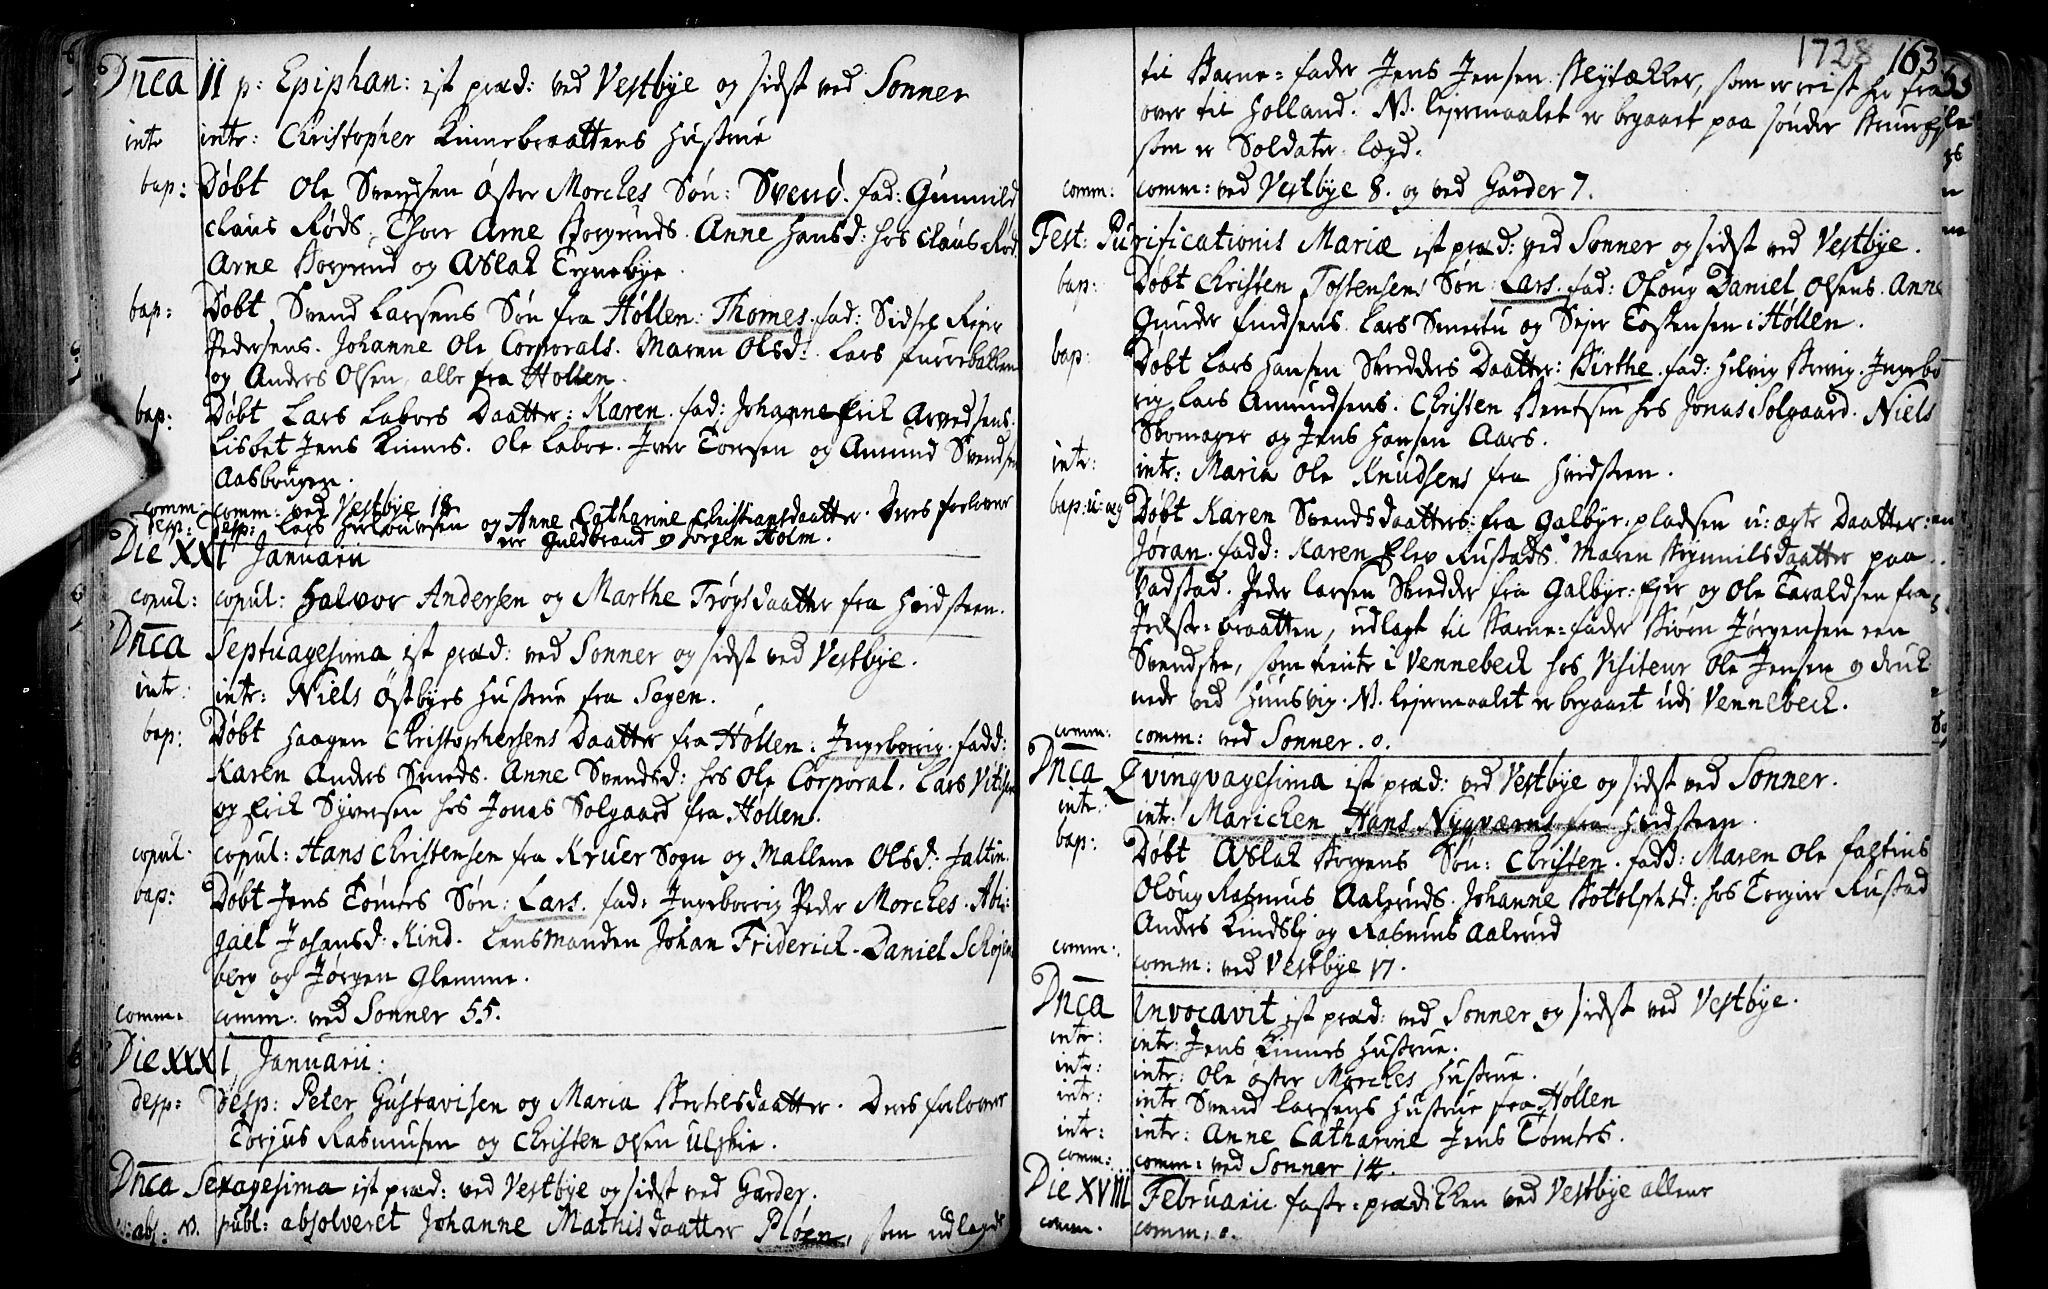 Dnca II p: Epiphan: ist præd: ved Vestbÿe og sidst ved Sonner
intr intr: Christopher Kinnebraattens Hustrue
bap: Døbt Ole Svendsen Øster Morches Søn: Svend. fad: Gunnild
Claus Røds, Thore Arne Borgunds. Anne Hansd: hos Claus Rød
Arne Borgund og Aslak Tegnebÿe.
bap: Døbt Svend Larsens Søn fra Høllen: Thomes. fad: Sidsel Rejer
Pedersens. Johanne Ole Corporals. Maren Olsd: Lars furreballen
og Anders Olsen, alle fra Høllen.
bap: Døbt Lars Labors Daatter: Karen. fad: Johanne Erick Arvedsens.
Lisbet Jens Kinnes. Ole Labor. Iver Torsen og Amund Svendsen
Aasbrúgen.
comm: comm: ved Vestbÿe 18
desp: desp: Lars og Anne Catharine Christiansdaatter. Deres forlover
er Guldbrand og Jørgen Holm.
Die XXI Januarii
copul: copul: Halvor Andersen og Marthe Trøgsdaatter fra Hvidsteen.
Dnca Septuagesima ist præd: ved Sonner og sidst ved Vestbÿe.
intr: intr: Niels Østbÿes Hustrue fra Sagen.
bap: Døbt Haagen Christophersens Daatter fra Høllen: Ingeborrig. fadd:
Karen Anders Smeds. Anne Svendsd: hos Ole Corporal. Lars
og Erick Sÿversen hos Jonas Solgaard fra Høllen.
copul. copul: Hans Christensen fra Kruer Sogn og Mallene Olsd: Jaltin.
bap: Døbt Jens Tømtes Søn: Lars. fad: Ingeborrig Peder Morches. Abi:
gael Johansd: Kind. Lensmanden Johan Friderick. Daniel Schøjen
berg og Jørgen Glemme.
comm. comm. ved Sonner 55.
Die XXXI Januarii:
desp: desp: Peter Gústavisen og Maria Bertelsdaatter. Deres forlover
Torjus Rasmusen og Christen Olsen Ulskie.
Dnca Sexagesima ist præd: ved Vestbÿe og sidst ved Garder.
abs: NB. publ: absolveret Johanne Mathisdaatter Pløen, som udlagde
1728 163
til Barne=fader Jens Jensen Blytækker, som er reist her fra
over til Holland. NB. lejermaalet er begaaet paa sønder
som er Soldater lægd.
comm: comm: ved Vestbÿe 8. og ved Garder 7.
Fest: Purificationis Mariæ ist præd: ved Sonner og sidst ved Vestbÿe.
bap: Døbt Christen Tostensens Søn Lars. fad: Oloug Daniel Olsens. Anne
Gunder Endsens. Lars Smertu og Sejer Tostensen i Høllen.
bap: Døbt Lars Hansen Skredders Daatter: Birthe. fad: Helvig Brevig. Ingebo
rig Lars Amundsens. Christen Bentsen hos Jonas Solgaard. Niels
Skomager og Jens Hansen Aars.
intr: intr: Maria Ole Knudsens fra Hvidsteen.
bap: u: æg Døbt Karen Svendsdaatters: fra Galbye. pladsen u: ægte Daatter:
Jøran. fadd: Karen Elev Rustads. Maren daatter paa
Vadstad. Peder Larsen Skredder fra Galbye: Ejer og Ole Taraldsen fra
braatten, udlagt til Barne=fader Biørn Jørgensen een
Svendske, som tiente i Vennebeck hos Visiteur Ole Jensen og druk
nede ved Húnsvig. NB. lejermaalet er begaaet udi Vennebeck.
comm: comm: ved Sonner. 0.
Dnca Qvinqvagesima ist præd: ved Vestbÿe og sidst ved Sonner.
intr: intr: Marichen Hans Nygværns fra Hvidsteen.
bap: Døbt Aslak Borgens Søn: Christen. fadd: Maren Ole faltins
Oloug Rasmus Aaleruds. Johanne Botolphsd: hos Torgier Rustad
Anders Kindslj og Rasmus Aalerud
comm: comm: ved Vestbÿe 17.
Dnca Invocavit ist præd: ved Sonner og sidst ved Vestbÿe.
intr: intr: Jens Kinnes Hustrue.
intr: intr: Ole Øster Morches Hustrue.
intr: intr Svend Larsens Hustrue fra Høllen
intr: intr: Anne Catharine Jens Tømtes.
comm: comm: ved Sonner 14.
Die XVIII Februarii faste=prædicken ved Vestbÿe allene
comm. comm. 0.